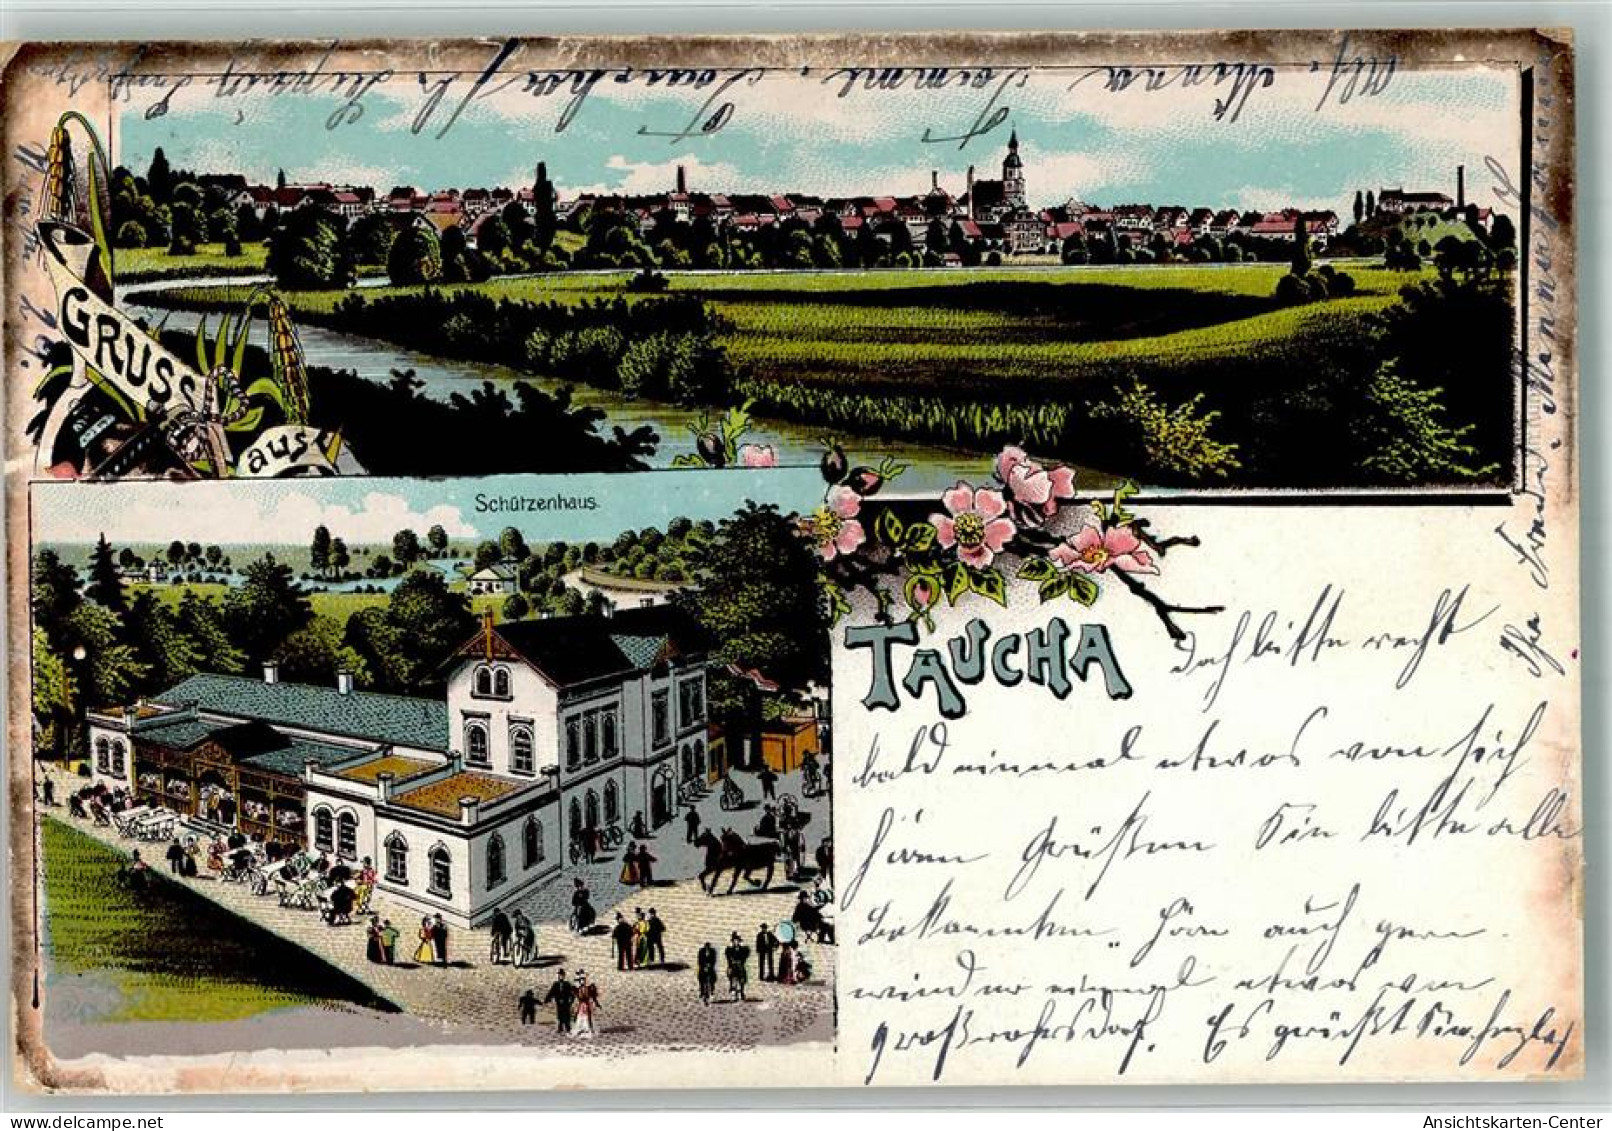 GRUSS
aus
Schützenhaus.
TAUCHA
doch bitte recht
bald einmal etwas von sich
hören Grüßen Sie bitte alle
Bekannten, höre auch gern
wieder einmal etwas von
Großröhrsdorf. Es grüßt Sie herzlich
Ihr Freund
Abs. Minna Taucha b. Leipzig
Ansichtskarten-Center